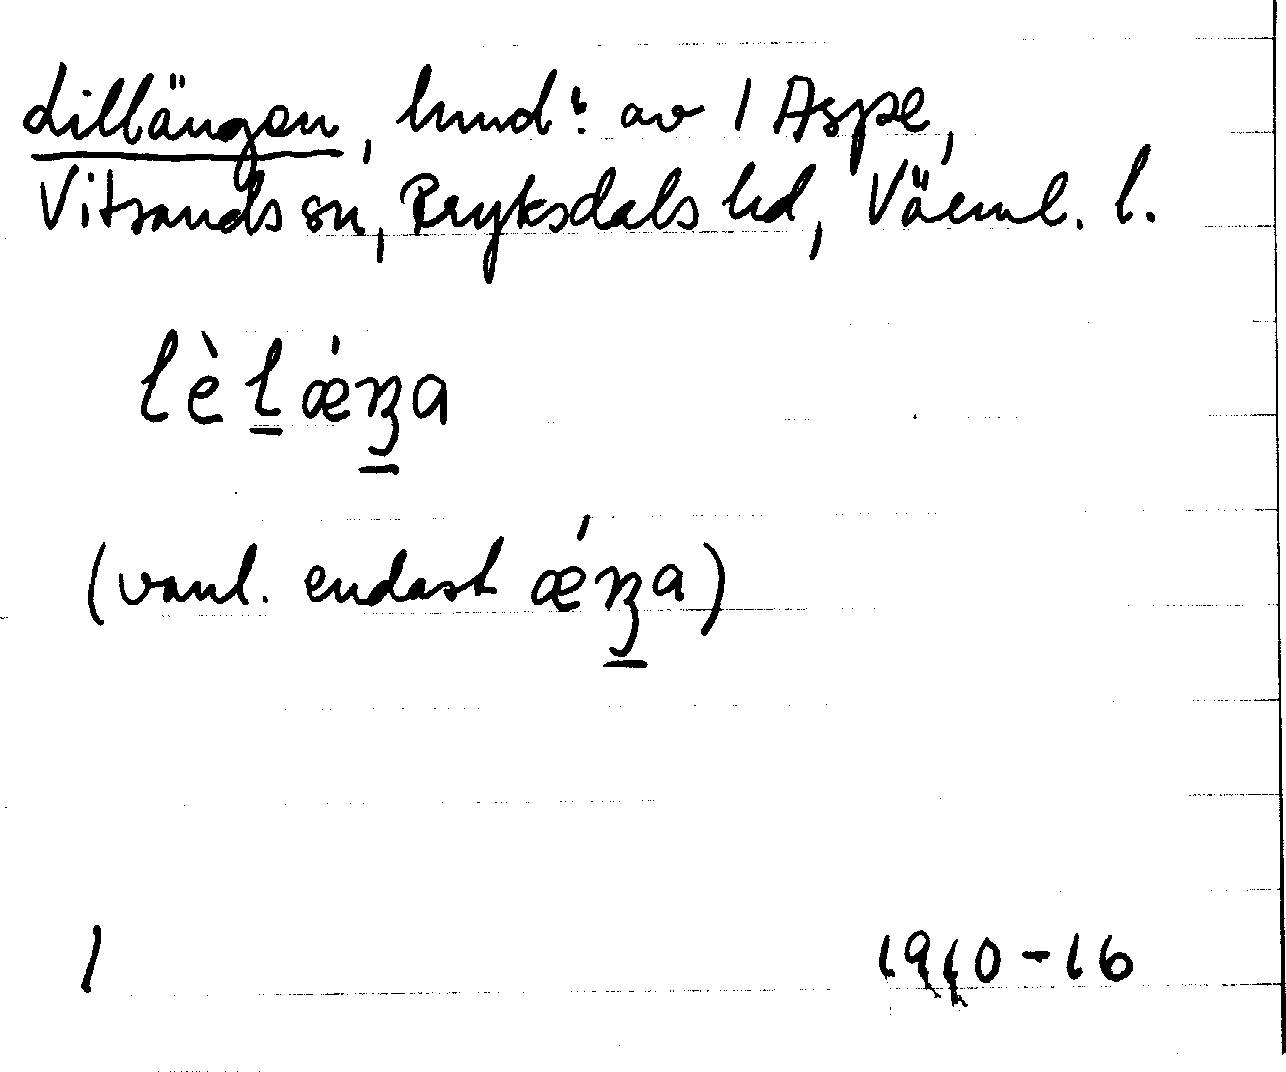 Lillängen, hmd: av 1 Aspe,
Vitsands sn, Fryksdals hd, Värml. l.
lèl̲ǽŋ̲a
(vanl. endast ǽŋ̲a)
1
1910-16